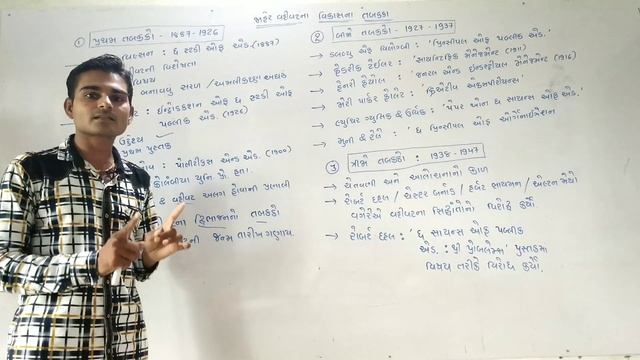 જાહેર વહીવટના વિકાસના તબક્કા
① પ્રથમ તબક્કો : 1887-1926
વિલ્સન : ધ સ્ટડી ઓફ એડ.(1887)
બનાવવું સરળ / અમલીકરણ અઘરું
: ઈન્ટ્રોડક્શન ઓફ ધ સ્ટડી ઓફ
પબ્લીક એડ. (1926)
ઉદ્દેશ્ય ✓
પ્રથમ પુસ્તક
: પોલીટીક્સ એન્ડ એડ. (1900)
કોલંબીયા યુનિ. પ્રો. હતા.
& વહીવટ અલગ હોવાની
દ્વિભાજનનો તબક્કો
જન્મ તારીખ ગણાય.
② બીજો તબક્કો : 1927 - 1937
→ ડબલ્યુ એફ વિલોબી : 'પ્રિન્સીપલ ઓફ પબ્લીક એડ.'
→ ફ્રેડરીક ટેઈલર : 'સાયન્ટિફિક મેનેજમેન્ટ' (1911)
→ હેનરી ફેયોલ : 'જનરલ એન્ડ ઈન્ડસ્ટ્રીયલ મેનેજમેન્ટ' (1916)
→ મેરી પાર્કર ફોલેટ : 'ક્રિએટીવ એક્સપીરીયન્સ'
→ લ્યુથર ગ્યુલિક & ઉર્વિક : 'પેપર ઓન ધ સાયન્સ ઓફ એડ.'
→ મુની & રેલે : 'ધ પ્રિન્સીપલ ઓફ ઓર્ગેનાઈઝેશન
③ ત્રીજો તબક્કો : 1938-1947
→ ચેતવણી અને આલોચનાનો કાળ
→ રોબર્ટ દહલ / ચેસ્ટર બર્નાડ / હર્બટ સાયમન / એલ્ટન મેયો
વગેરેએ વહીવટના સિદ્ધાંતોનો વિરોધ કર્યો
→ રોબર્ટ દહલ : 'ધ સાયન્સ ઓફ પબ્લીક
એડ. : થ્રી પ્રોબ્લેમ્સ' પુસ્તકમાં
વિષય તરીકે વિરોધ કર્યો.